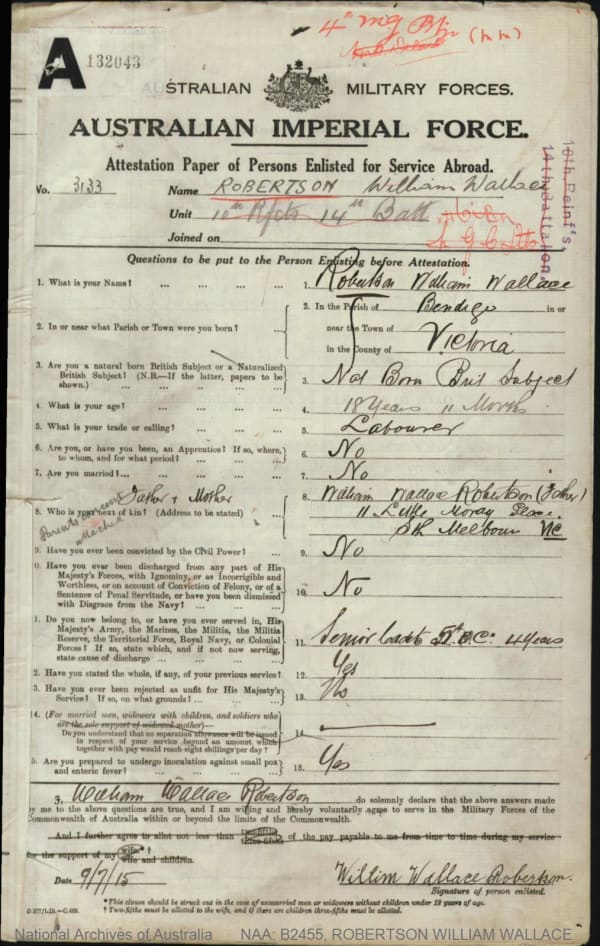 4th MG Btn (M M)
A
132043
AUSTRALIAN MILITARY FORCES.
AUSTRALIAN IMPERIAL FORCE.
Attestation Paper of Persons Enlisted for Service Abroad.
No. 3133 Name ROBERTSON William Wallace
Unit 10th Rfts 14th Batt
10th Reinf's
14th Battalion,
Joined on
Questions to be put to the Person Enlisting before Attestation.
1. What is your Name? ... ... ... ... 1. Robertson William Wallace
2. In or near what Parish or Town were you born? ... ... 2. In the Parish of Bendigo in or
near the Town of
in the County of Victoria
3. Are you a natural born British Subject or a Naturalized
British Subject? (N.B.—If the latter, papers to be
shown.) ... ... ... ... 3. Nat Born Brit Subject
4. What is your age? ... ... ... ... 4. 18 Years 11 Months
5. What is your trade or calling? ... ... ... 5. Labourer
6. Are you, or have you been, an Apprentice? If so, where,
to whom, and for what period? ... ... ... 6. No
7. Are you married? ... ... ... ... 7. No
Father & Mother
8. Who is your next of kin? (Address to be stated) ... 8. William Wallace Robertson (Father)
11 Little Moray Place
Sth Melbourn Vic
Parents consent
attached
9. Have you ever been convicted by the Civil Power? ... 9. No
0. Have you ever been discharged from any part of His
Majesty's Forces, with Ignominy, or as Incorrigible and
Worthless, or on account of Conviction of Felony, or of a
Sentence of Penal Servitude, or have you been dismissed
with Disgrace from the Navy? ... ... ... 10. No
1. Do you now belong to, or have you ever served in, His
Majesty's Army, the Marines, the Militia, the Militia
Reserve, the Territorial Force, Royal Navy, or Colonial
Forces? If so, state which, and if not now serving,
state cause of discharge ... ... ... 11. Senior Cadets 4 years
2. Have you stated the whole, if any, of your previous service? 12. Yes
3. Have you ever been rejected as unfit for His Majesty's
Service? If so, on what grounds? ... ... 13. No
14. (For married men, widowers with children, and soldiers who
are the sole support of widowed mother)—
Do you understand that no separation allowance will be issued
in respect of your service beyond an amount which
together with pay would reach eight shillings per day? 14.
5. Are you prepared to undergo inoculation against small pox
and enteric fever? ... ... ... ... 15. Yes
I, William Wallace Robertson do solemnly declare that the above answers made
by me to the above questions are true, and I am willing and hereby voluntarily agree to serve in the Military Forces of the
Commonwealth of Australia within or beyond the limits of the Commonwealth.
And I further agree to allot not less than two-fifths three-fifths of the pay payable to me from time to time during my service
for the support of my wife*† wife and children.
Date 9/7/15 Willim Wallace Robertson.
Signature of person enlisted.
*This clause should be struck out in the case of unmarried men or widowers without children under 18 years of age.
† Two-fifths must be allotted to the wife, and if there are children three-fifths must be allotted.
National Archives of Australia NAA: B2455, ROBERTSON WILLIAM WALLACE